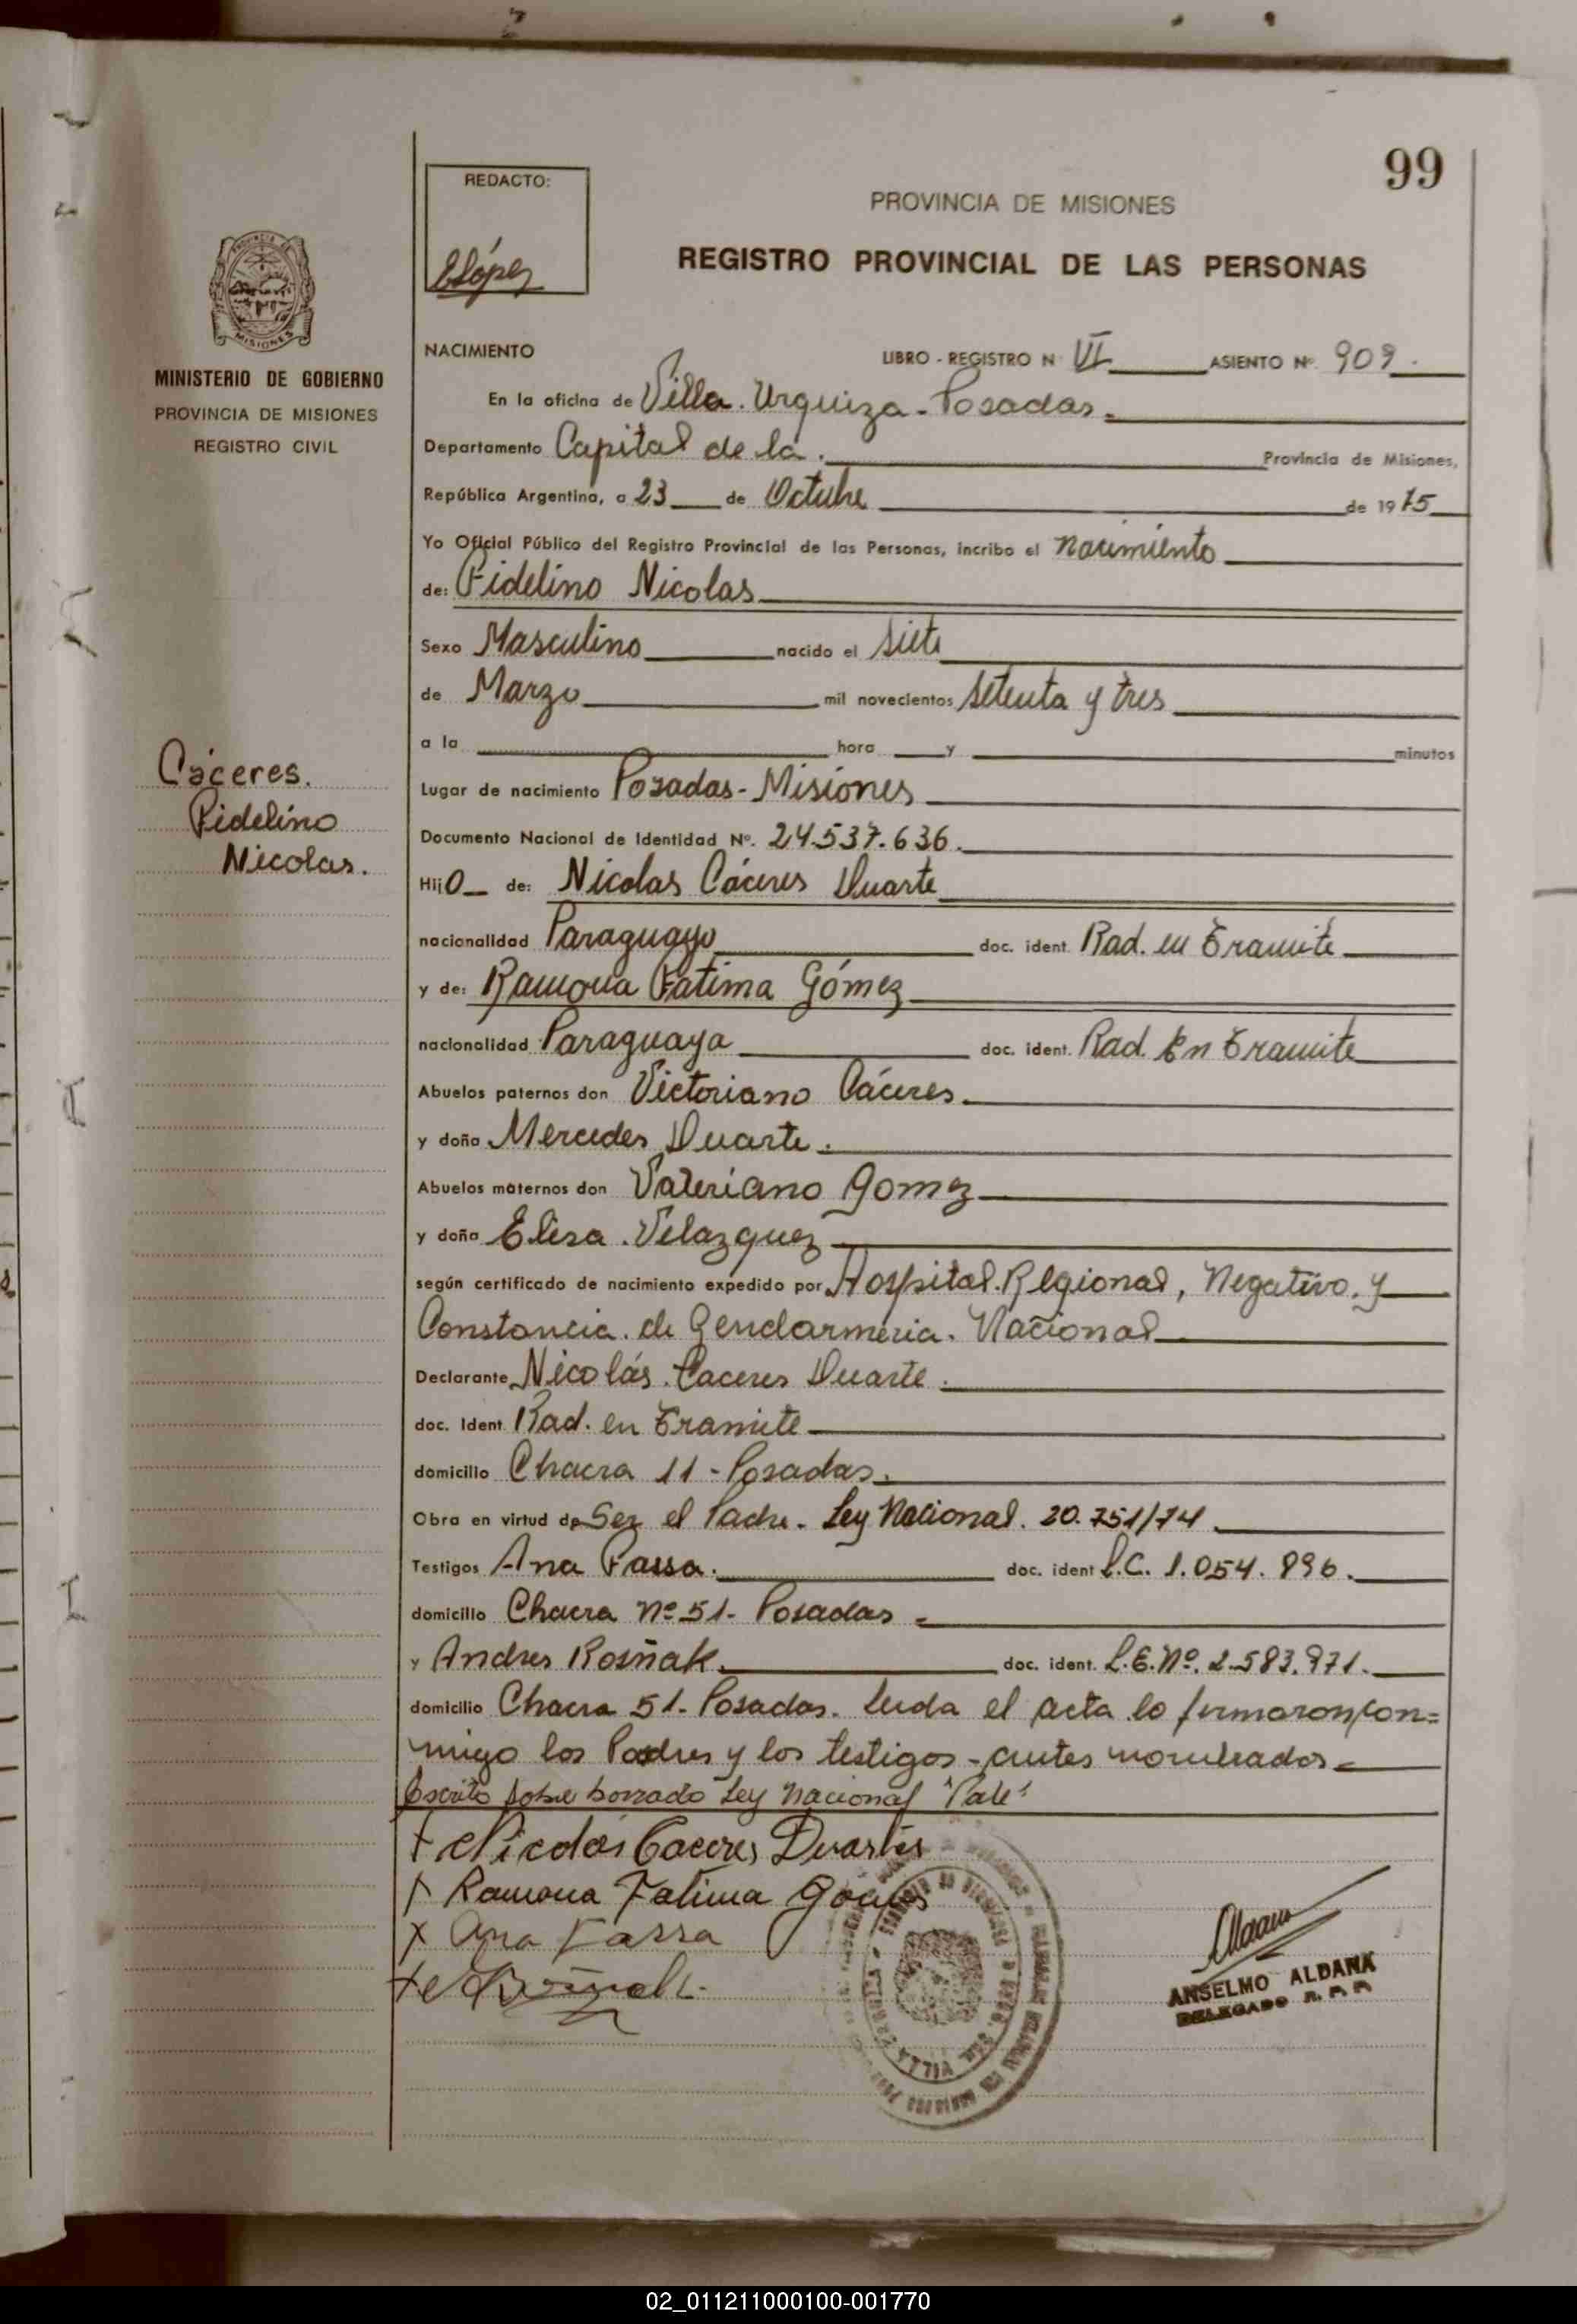 99
REDACTO:
ELópez
PROVINCIA DE MISIONES
REGISTRO PROVINCIAL DE LAS PERSONAS
MISIONES
MINISTERIO DE GOBIERNO
PROVINCIA DE MISIONES
REGISTRO CIVIL
Cáceres.
Fidelino
Nicolas.
NACIMIENTO LIBRO - REGISTRO N VI ASIENTO Nº 909.
En la oficina de Villa. Urquiza - Posadas.
Departamento Capital de la. Provincia de Misiones,
República Argentina, a 23 de Octubre de 1975
Yo Oficial Público del Registro Provincial de las Personas, incribo el nacimiento
de: Fidelino Nicolas
Sexo Masculino nacido el siete
de Marzo mil novecientos setenta y tres
a la hora y minutos
Lugar de nacimiento Posadas - Misiones
Documento Nacional de Identidad Nº. 24.537.636.
HijO de: Nicolas Cáceres Duarte
nacionalidad Paraguayo doc. ident. Rad. en tramite
y de: Ramona Fatima Gómez
nacionalidad Paraguaya doc. ident. Rad. En tramite
Abuelos paternos don Victoriano Cáceres.
y doña Mercedes Duarte.
Abuelos maternos don Valeriano Gomez
y doña Elisa. Velazquez
según certificado de nacimiento expedido por Hospital. Regional, Negativo. y
Constancia. de Gendarmeria. Nacional
Declarante Nicolás. Caceres Duarte.
doc. Ident Rad. en tramite
domicilio Chacra 11 - Posadas.
Obra en virtud de Ser el Padre. Ley Nacional. 20.751/74
Testigos Ana Fassa. doc. ident L.C. 1.054.896.
domicilio Chacra Nº 51 - Posadas
y Andres Rosñak. doc. ident. L.E. Nº. 2.583.971.
domicilio Chacra 51 - Posadas. leida el acta lo firmaron con=
migo los Padres y los testigos - antes nombrados
Escrito sobre borrado Ley Nacional "Vale"
Nicolás Caceres Duarte
Ramona Fatima Gómez
Ana Fassa
ANSELMO ALDANA
DELEGADO R. P. P.
VILLA URQUIZA
02_011211000100-001770